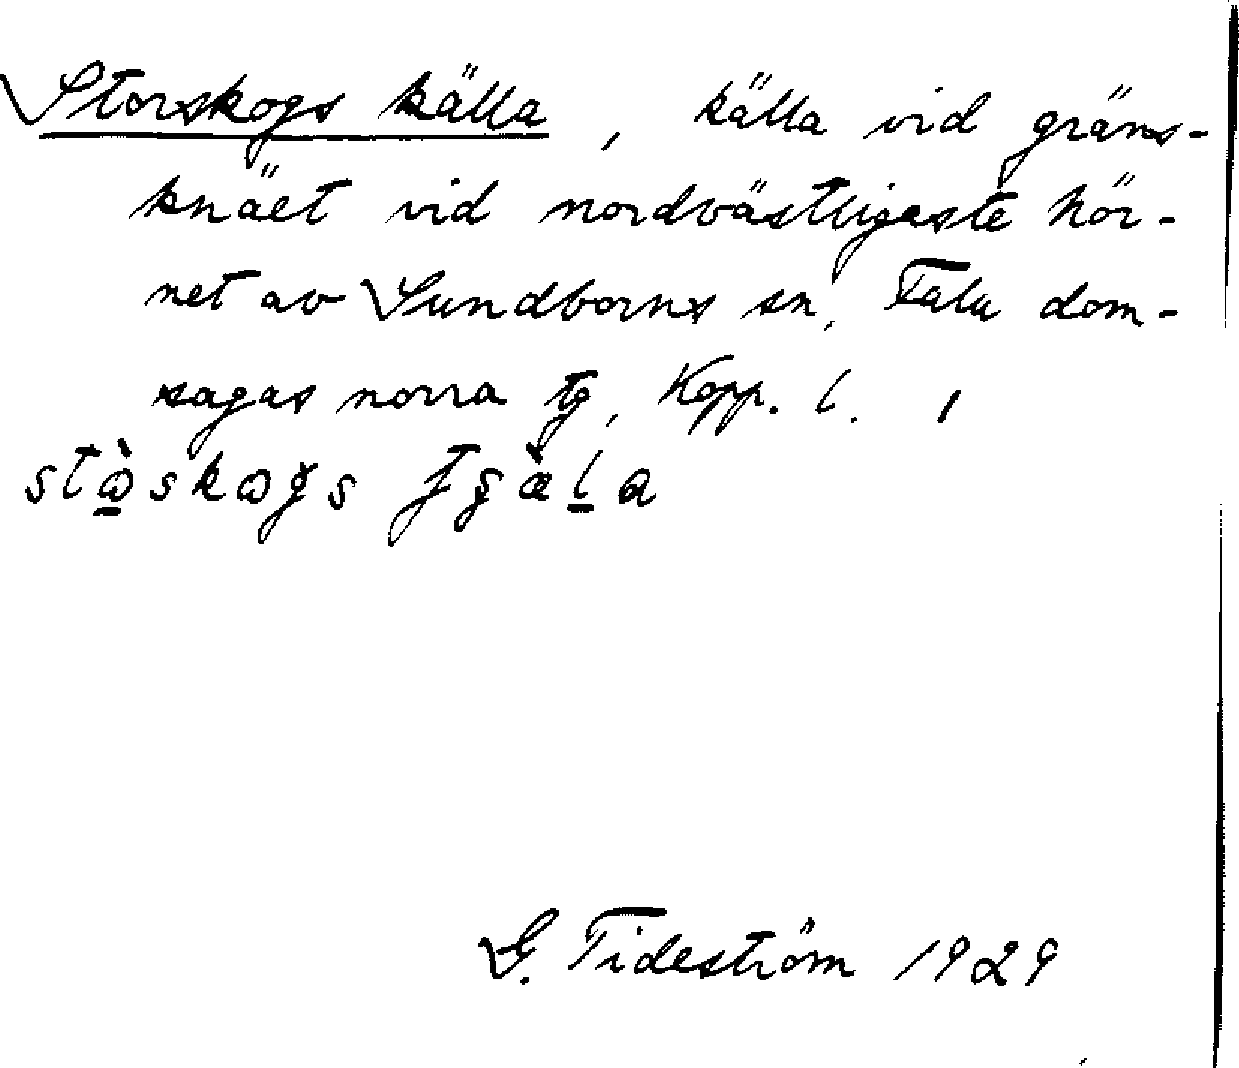 Storskogs källa, källa vid gräns-
knäet vid nordvästligaste hör-
net av Sundborns sn, Falu dom-
sagas norra tg, Kopp. l.
G. Tideström 1929